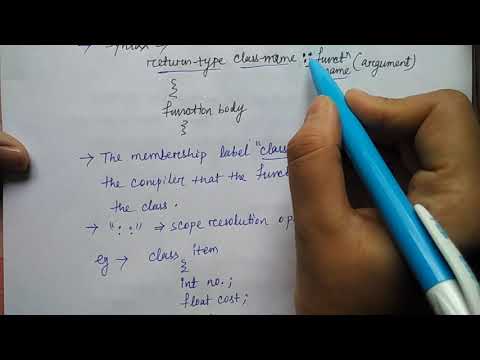 return-type class-name :: functⁿ
name (argument)
{
function body
}
→ The membership label "class
the compiler that the funct
the class.
→ "::" ⇒ scope resolution op
eg → class item
{
int no.;
float cost;